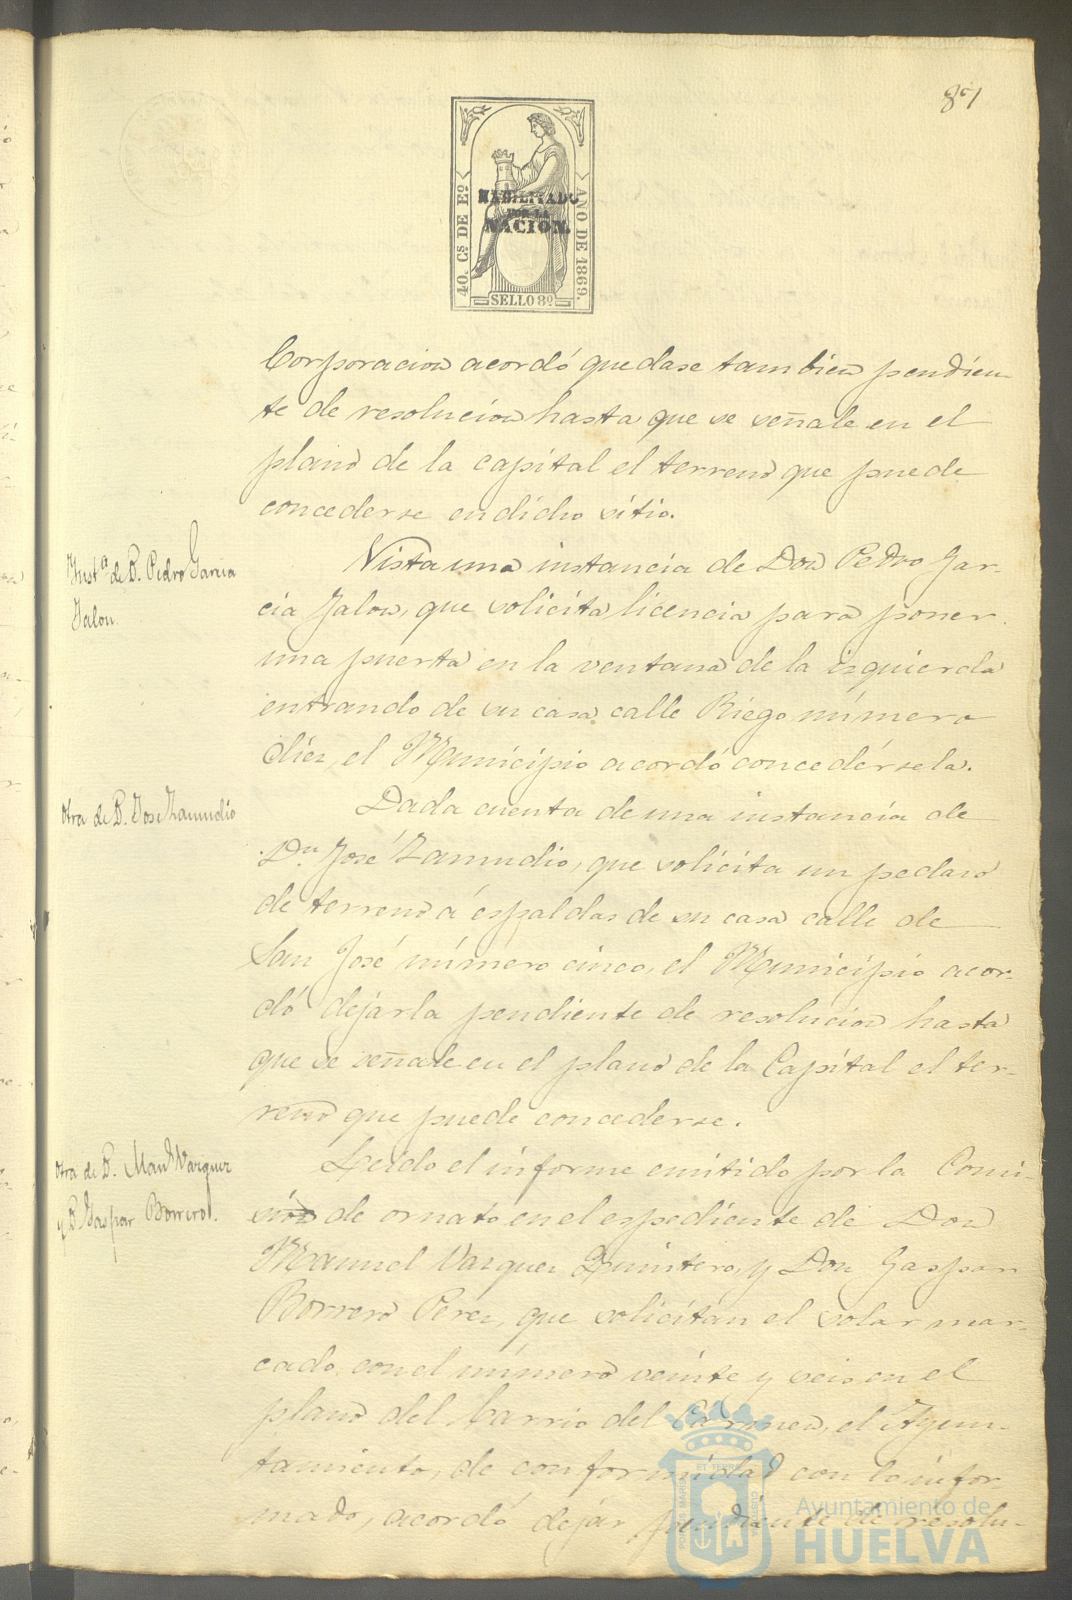 87
HABILITADO
POR LA
NACION.
40. Cs DE Eo.
AÑO DE 1869.
SELLO 8º
Corporacion acordó quedase tambien pendien
te de resolucion hasta que se señale en el
plano de la capital el terreno que puede
concederse en dicho sitio.
Instª de D. Pedro Garcia
Jalon.
Vista una instancia de Don Pedro Gar-
cia Jalon, que solicita licencia para poner
una puerta en la ventana de la izquierda
entrando de su casa calle Riego número
diez, el Municipio acordó concedérsela.
Otra de D. Jose Zamudio
Dada cuenta de una instancia de
Dn José Zamudio, que solicita un pedazo
de terreno á espaldas de su casa calle de
San José número cinco, el Municipio acor-
dó dejarla pendiente de resolucion hasta
que se señale en el plano de la Capital el ter-
reno que puede concederse.
Otra de D. Manl Vazquez
y D. Gaspar Borrero.
Leido el informe emitido por la Comi-
sión de ornato en el espediente de Don
Manuel Vazquez Quintero, y Don Gaspar
Borrero Perez, que solicitan el solar mar-
cado con el número veinte y seis en el
plano del barrio del Cármen, el Ayun-
tamiento, de conformidad con lo infor-
mado, acordó dejar pendiente de resolu-
Ayuntamiento de
HUELVA